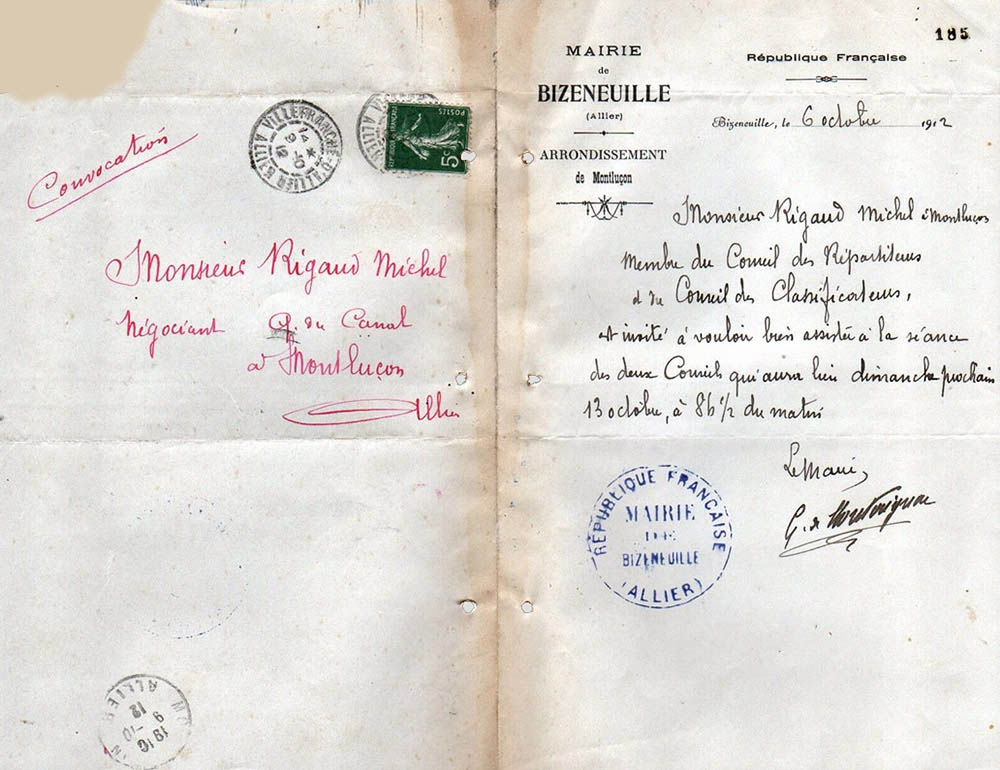 Convocation
VILLEFRANCHE-D'ALLIER
ALLIER
9 -10
12
POSTES
5c
Monsieur Rigaud Michel
Négociant Q. du Canal
à Montluçon
Allier
ALLIER
9 -10
12
185
MAIRIE
de
BIZENEUILLE
(Allier)
ARRONDISSEMENT
de Montluçon
République Française
Bizeneuille, le 6 octobre 1912
Monsieur Rigaud Michel à Montluçon
Membre du Conseil des Répartiteurs
et du Conseil des Classificateurs,
est invité à vouloir bien assister à la séance
des deux Conseils qu'aura lieu dimanche prochain
13 octobre, à 8h ½ du matin
Le Maire,
G. de
RÉPUBLIQUE FRANÇAISE
MAIRIE
DE
BIZENEUILLE
(ALLIER)